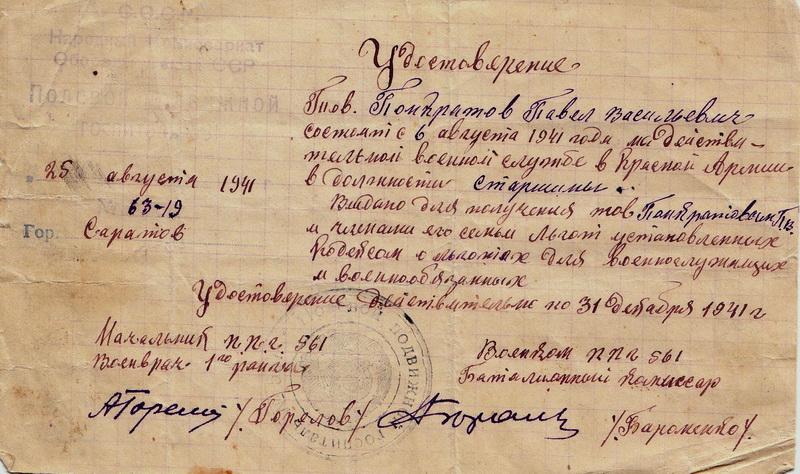 СССР
Народный Комиссариат
Обороны Союза ССР
Полевой Подвижной
Госпиталь
25 августа 1941
№ 63-19
Гор. Саратов
Удостоверение
Тов. Панкратов Павел Васильевич
состоит с 6 августа 1941 года на действи-
тельной военной службе в Красной Армии
в должности старшины.
Выдано для получения тов Панкратовым П.В.
и членами его семьи льгот установленных
Кодексом о льготах для военнослужащих
и военнообязанных
Удостоверение действительно по 31 декабря 1941 г
Начальник п.п.г. 561
Военврач 1го ранга
/Горялов/
Военком ппг 561
Баталионный комиссар
/Бароненко/
ПОДВИЖН
ГОСПИТАЛЬ